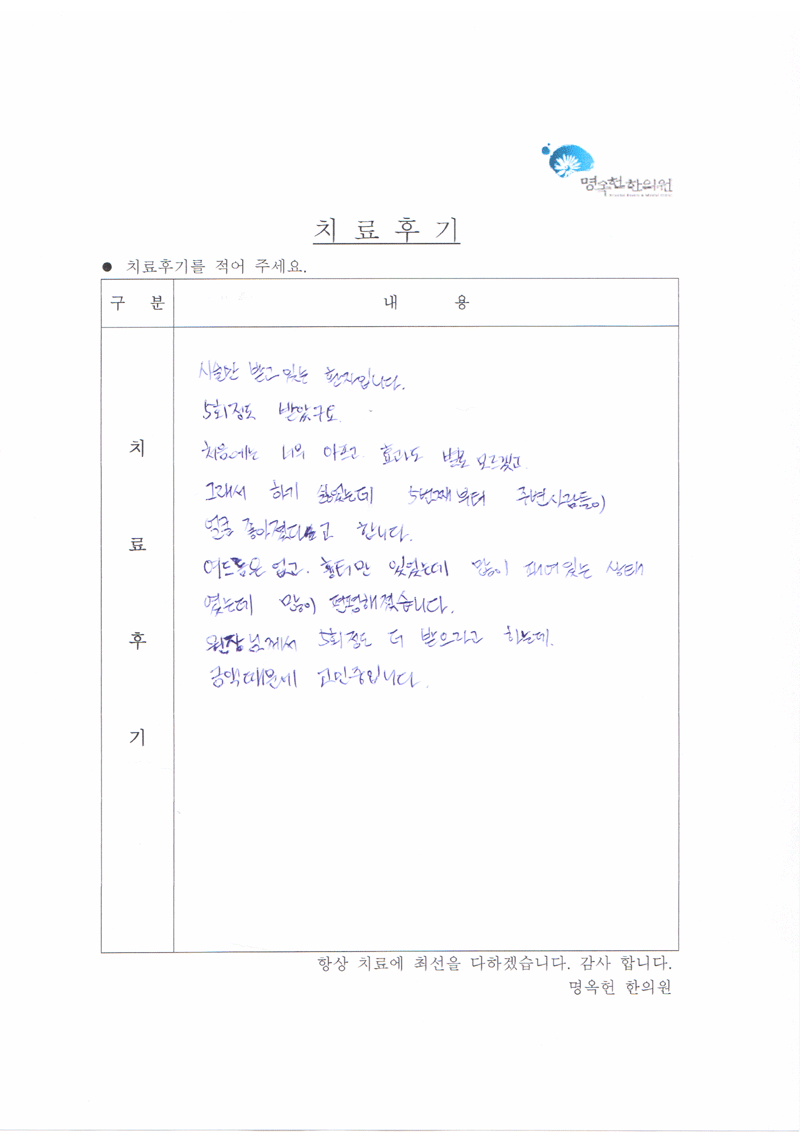 명옥헌한의원
치 료 후 기
● 치료후기를 적어 주세요.
구 분
내 용
치
료
후
기
시술만 받고 있는 환자입니다.
5회정도 받았구요.
처음에는 너무 아프고 효과도 별로 모르겠고
그래서 하기 싫었는데 5번째부터 주변사람들이
얼굴 좋아졌다고 합니다.
여드름은 없고. 흉터만 있었는데 많이 패여있는 상태
였는데 많이 편평해졌습니다.
원장님께서 5회정도 더 받으라고 하는데.
금액때문에 고민중입니다.
항상 치료에 최선을 다하겠습니다. 감사 합니다.
명옥헌 한의원